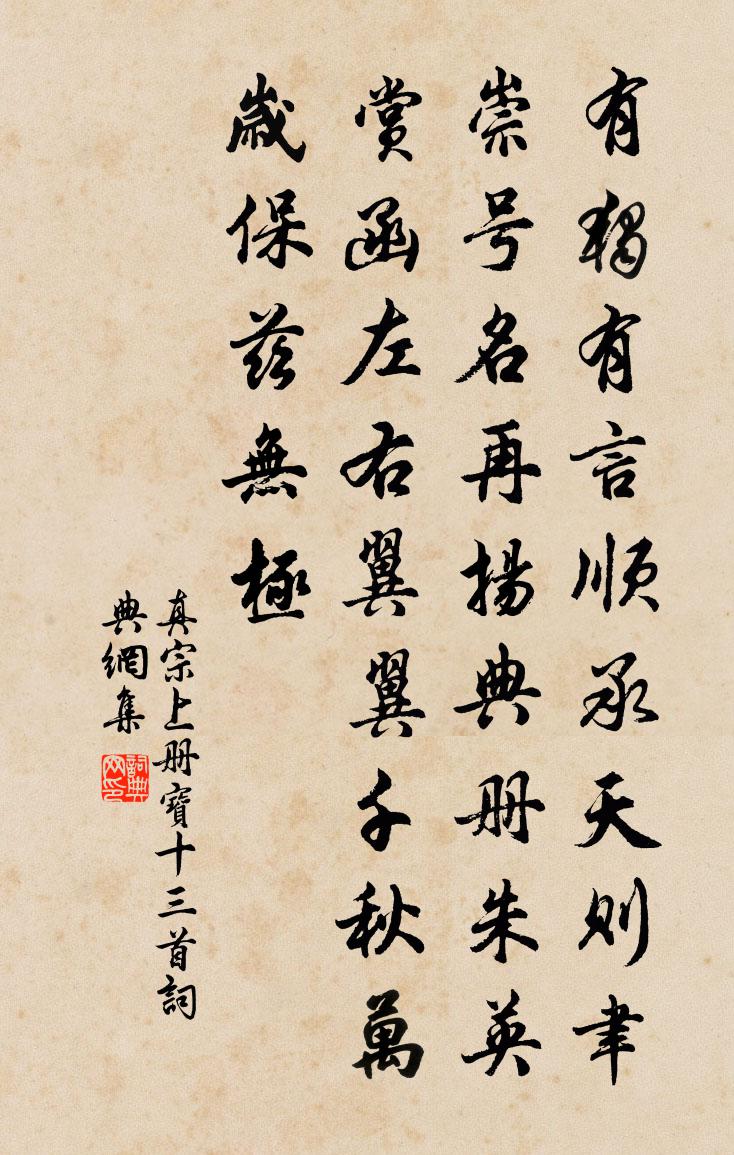 有有言順承天則聿
崇号名再揚典册朱英
賞函左右翼翼千秋萬
歲保茲無極
真宗上册寶十三首詞
典網集
詞典
网印